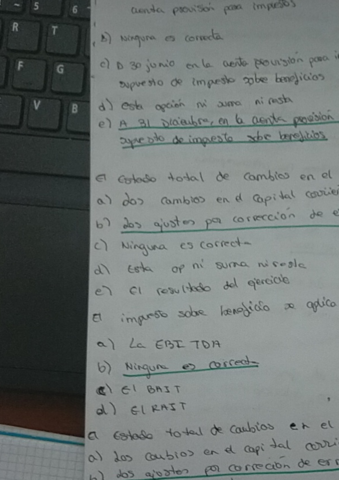 5 6
R T
F G
V B
cuenta provisión para impuestos
b) Ninguna es correcta
c) A 30 junio en la cuenta provisión para i
supuesto de impuesto sobre beneficios
d) esta opción ni suma ni resta
e) A 31 Diciembre, en la cuenta provisión
supuesto de impuesto sobre beneficios
El estado total de cambios en el
a) Los cambios en el capital
b) Los ajustes por corrección de e
c) Ninguna es correcta
d) Esta op ni suma ni resta
e) El resultado del ejercicio
El impuesto sobre beneficio se aplica
a) La EBITDA
b) Ninguna es correcta
c) El BAIT
d) El RAIT
El Estado total de cambios en el
a) Los cambios en el capital
b) Los ajustes por corrección de err